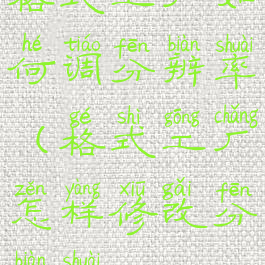 hé tiáo fēn biàn shuài
何调分辨率
gé shì gōng chǎng
（格式工厂
zěn yàng xiū gǎi fēn
怎样修改分
biàn shuài